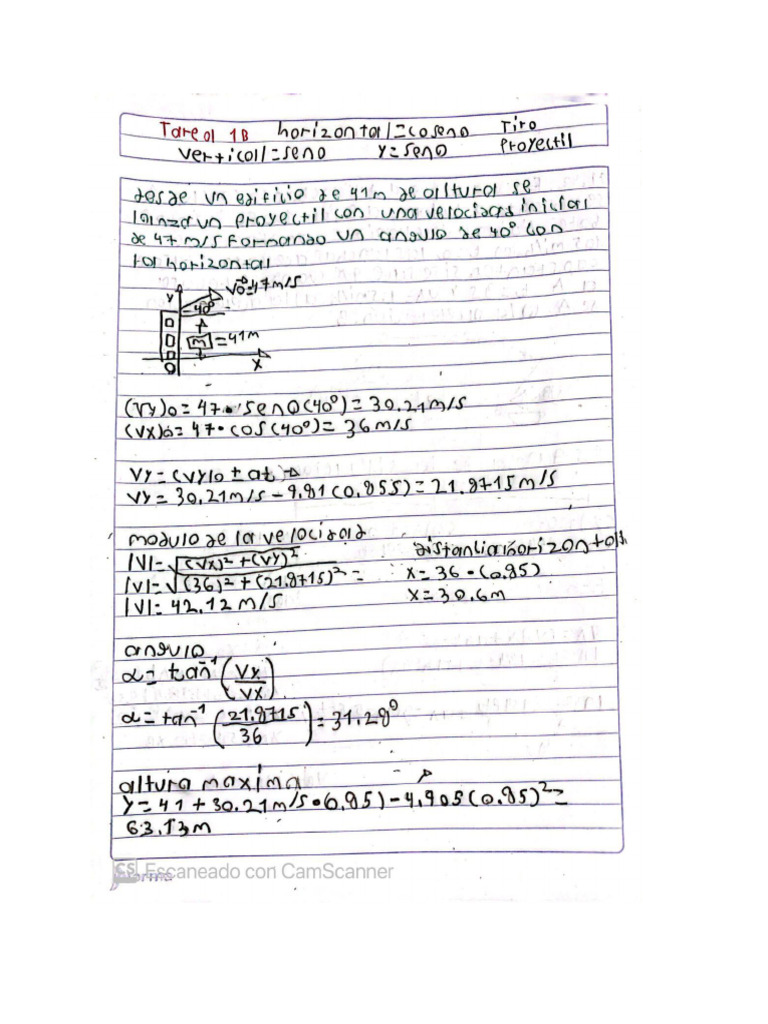 Tarea 1B horizontal=coseno Tiro
vertical=seno y=seno Proyectil
desde un edificio de 41m de altura se
lanza un proyectil con una velocidad inicial
de 47 m/s formando un angulo de 40° con
la horizontal
y V0=47m/s
40°
m =41m
0 x
(Vy)0=47·seno(40°)=30.21m/s
(Vx)0=47·cos(40°)=36m/s
Vy=(Vy)0±at
Vy=30.21m/s-9.81(0.855)=21.8715m/s
modulo de la velocidad
|V|=√(Vx)²+(Vy)² distancia horizontal
|V|=√(36)²+(21.8715)²= x=36·(0.85)
|V|=42.12m/s x=30.6m
angulo
α=tan⁻¹(Vy/Vx)
α=tan⁻¹(21.8715/36)=31.28°
altura maxima
y=41+30.21m/s·0.85)-4.905(0.85)²=
63.13m
CS Escaneado con CamScanner